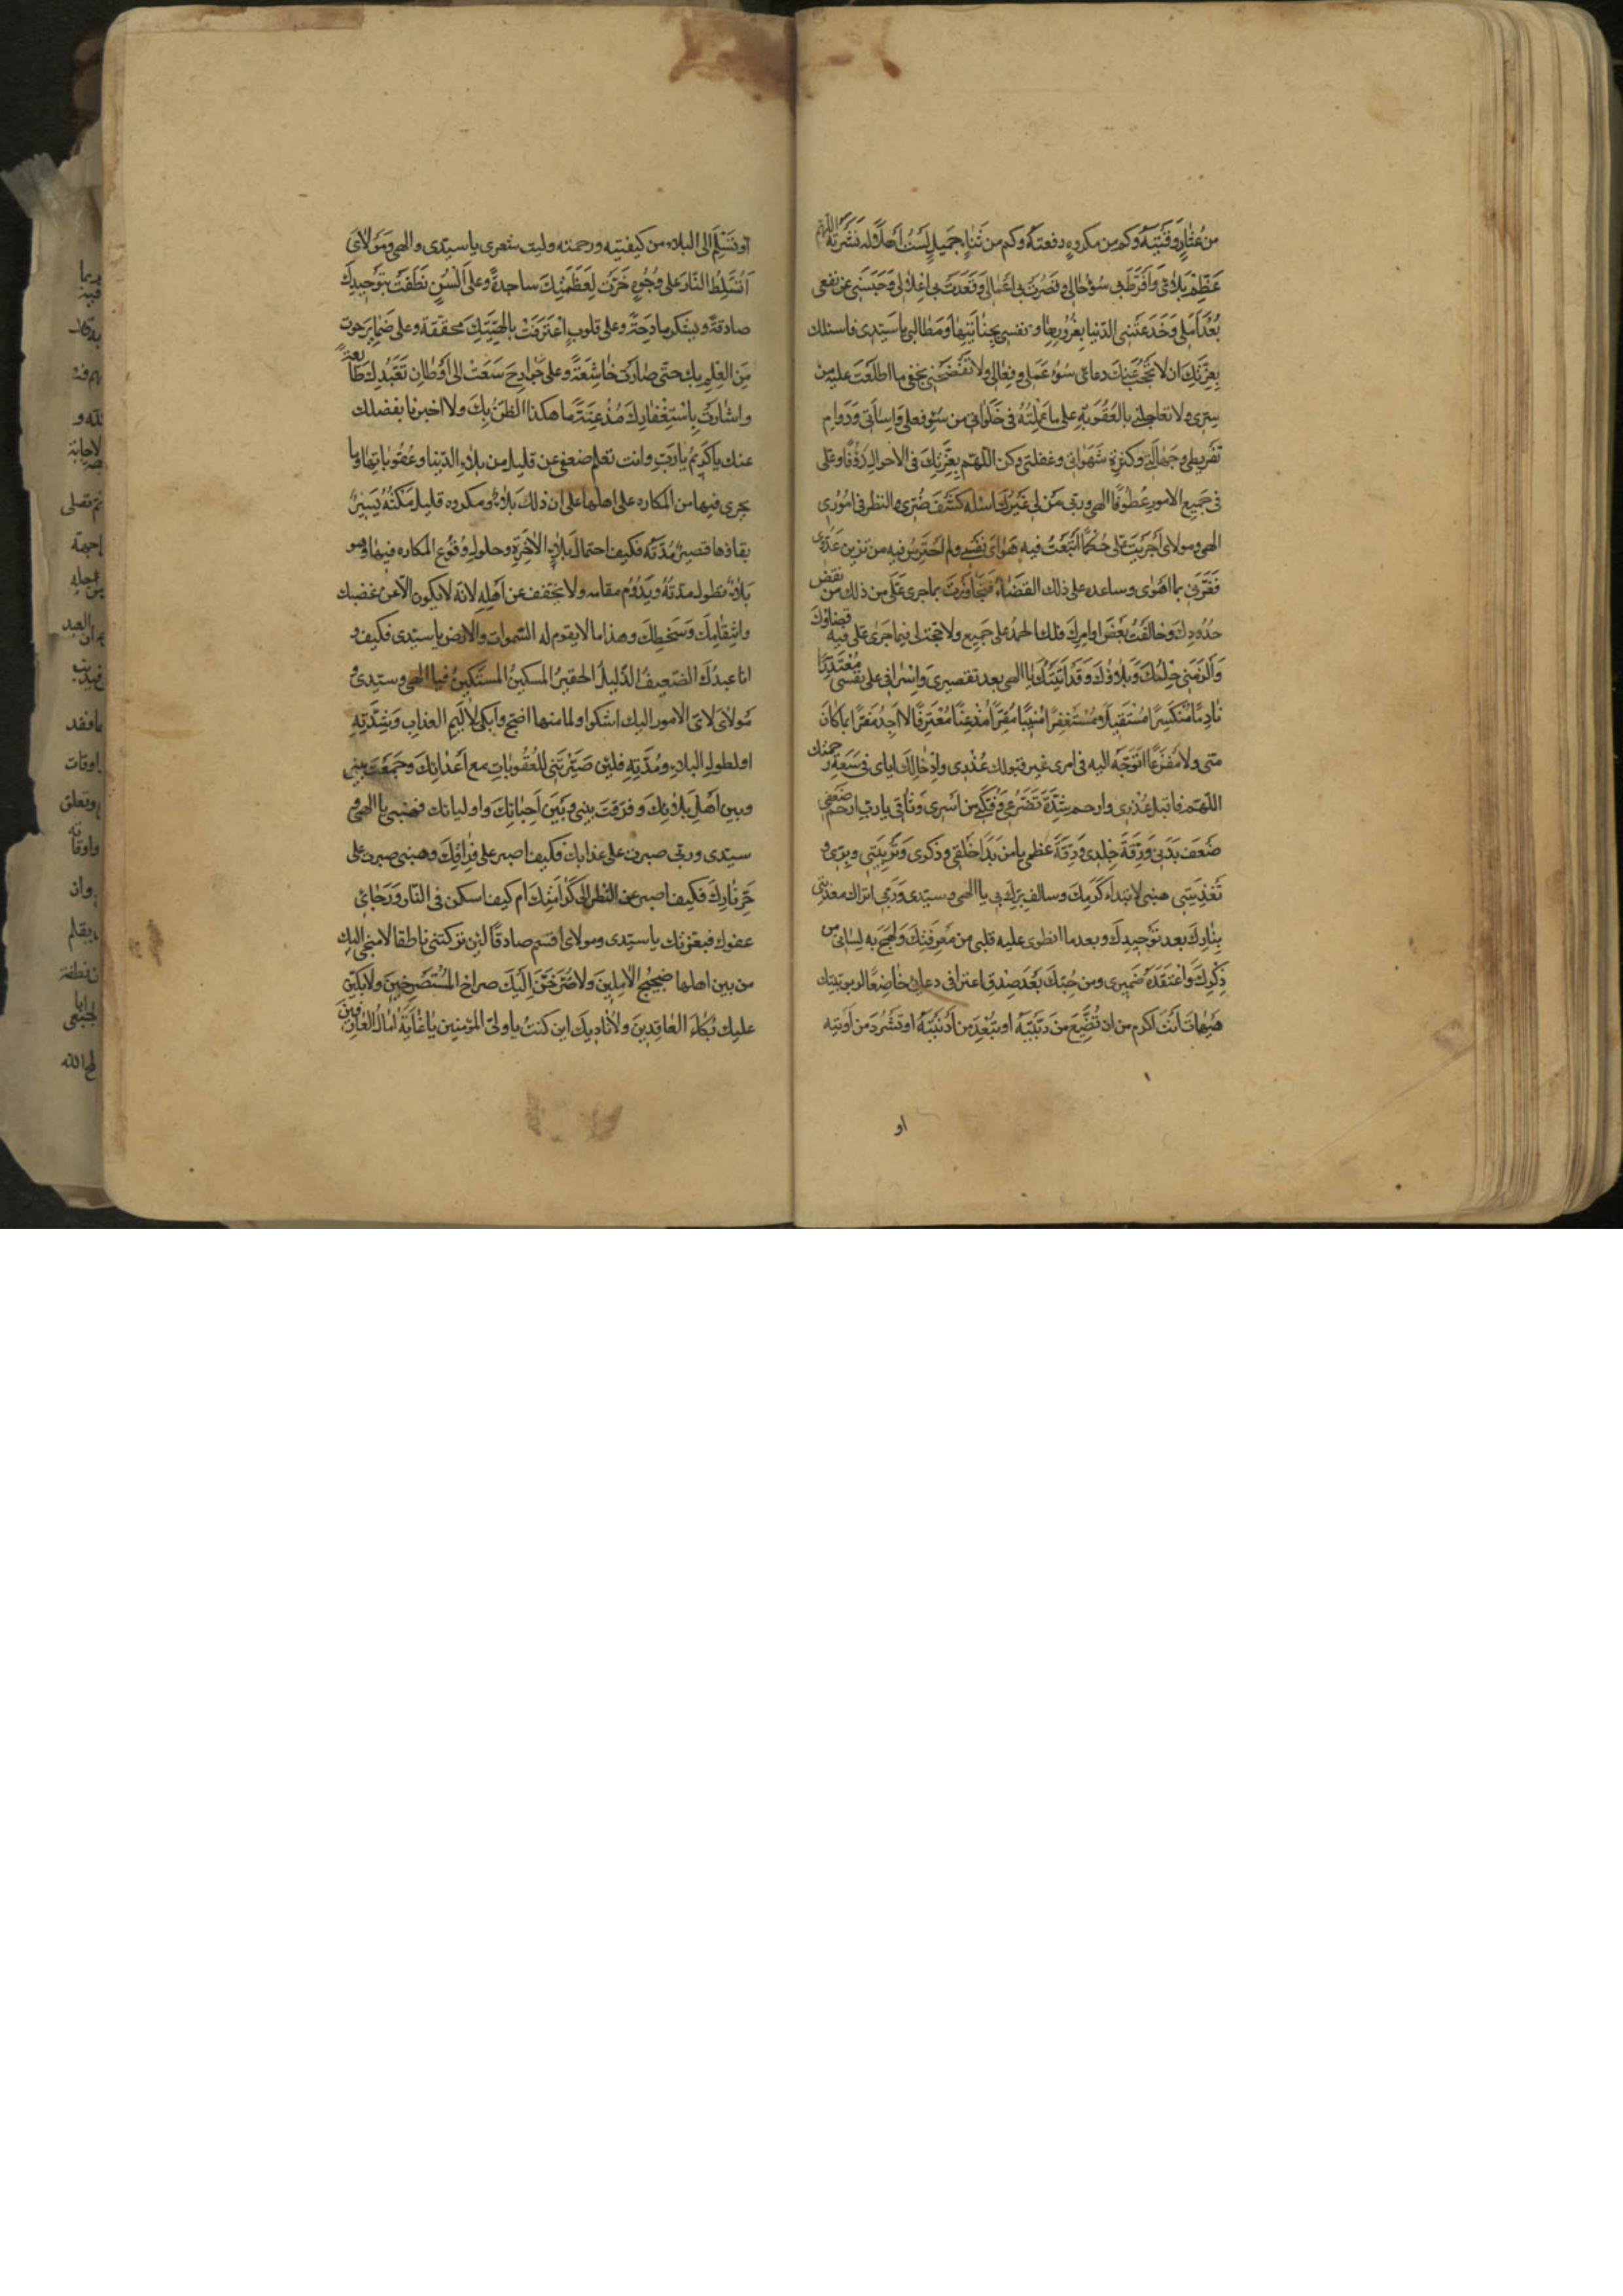 من عثار وقيته وكم من مكروه دفعته وكم من ثناء جميل لست أهلا له نشرته اللهم
عظم بلائى وأفرط بى سوء حالى وقصرت بى أعمالى وقعدت بى أغلالى وحبسنى عن نفعى
بعد أملى وخدعتنى الدنيا بغرورها ونفسى بجنايتها ومطالى يا سيدى فاسئلك
بعزتك ان لا تحجب عنك دعائى سوء عملى وفعالى ولا تفضحنى بخفى ما اطلعت عليه من
سرى ولا تعاجلنى بالعقوبة على ما عملته فى خلواتى من سوء فعلى واسائتى ودوام
تفريطى وجهالتى وكثرة شهواتى وغفلتى وكن اللهم بعزتك فى الاحوال رؤفا وعلى
فى جميع الامور عطوفا الهى وربى من لى غيرك اسئله كشف ضرى والنظر فى امورى
الهى ومولاى أجريت على حكما اتبعت فيه هواى نفسى ولم احترس فيه من تزيين عدوى
فغرنى بما اهوى وساعده على ذلك القضاء فتجاوزت بما جرى على من ذلك من نقض
حدودك وخالفت بعض اوامرك فلك الحمد على جميع ولا حجة لى فيما جرى على فيه قضاؤك
وألزمنى حكمك وبلاؤك وقد أتيتك يا الهى بعد تقصيرى واسرافى على نفسى معتذرا
نادما منكسرا مستقيلا ومستغفرا منيبا مقرا مذعنا معترفا لا اجد مفرا مما كان
منى ولا مفزعا اتوجه اليه فى امرى غير قبولك عذرى وادخالك اياى فى سعة رحمتك
اللهم فاقبل عذرى وارحم شدة تضرعى وفكنى من أسرى وثاقى يا رب ارحم ضعفى
ضعف بدنى ورقة جلدى ودقة عظمى يا من بدا خلقى وذكرى وتربيتى وبرى و
تغذيتى هبنى لابتداء كرمك وسالف برك بى يا الهى وسيدى وربى اتراك معذبى
بنارك بعد توحيدك وبعد ما انطوى عليه قلبى من معرفتك ولهج به لسانى من
ذكرك واعتقده ضميرى ومن حبك بعد صدق اعترافى ودعائى خاضعا لربوبيتك
هيهات أنت أكرم من ان تضيع من ربيته او تبعد من أدنيته او تشرد من آويته
او
او تسلم الى البلاء من كيفيته ورحمته وليت شعرى يا سيدى والهى ومولاى
أتسلط النار على وجوه خرت لعظمتك ساجدة وعلى ألسن نطقت بتوحيدك
صادقة وبشكرك مادحة وعلى قلوب اعترفت بالهيتك محققة وعلى ضماير حوت
من العلم بك حتى صارت خاشعة وعلى جوارح سعت الى أوطان تعبدك طائعة
واشارت باستغفارك مذعنة ما هكذا الظن بك ولا اخبرنا بفضلك
عنك يا كريم يا رب وانت تعلم ضعفى عن قليل من بلاء الدنيا وعقوباتها وما
يجرى فيها من المكاره على اهلها على ان ذلك بلاء ومكروه قليل مكثه يسير
بقاؤها قصير مدته فكيف احتمالى لبلاء الاخرة وحلول وقوع المكاره فيها وهو
بلاء تطول مدته ويدوم مقامه ولا يخفف عن اهله لانه لا يكون الا عن غضبك
وانتقامك وسخطك وهذا ما لا يقوم له السموات والارض يا سيدى فكيف و
انا عبدك الضعيف الذليل الحقير المسكين المستكين فيا الهى وسيدى و
مولاى لاى الامور اليك اشكوا ولما منها اضج وابكى لاليم العذاب وبشدته
او لطول البلاء ومدته فلئن صيرتنى للعقوبات مع أعدائك وجمعت بينى
وبين اهل بلائك وفرقت بينى وبين احبائك واوليائك فهبنى يا الهى و
سيدى وربى صبرت على عذابك فكيف اصبر على فراقك وهبنى صبرت على
حر نارك فكيف اصبر عن النظر الى كرامتك ام كيف اسكن فى النار ورجائى
عفوك فبعزتك يا سيدى ومولاى اقسم صادقا لئن تركتنى ناطقا لاضجن اليك
من بين اهلها ضجيج الاملين ولاصرخن اليك صراخ المستصرخين ولابكين
عليك بكاء الفاقدين ولانادينك اين كنت يا ولى المؤمنين يا غاية امال العارفين